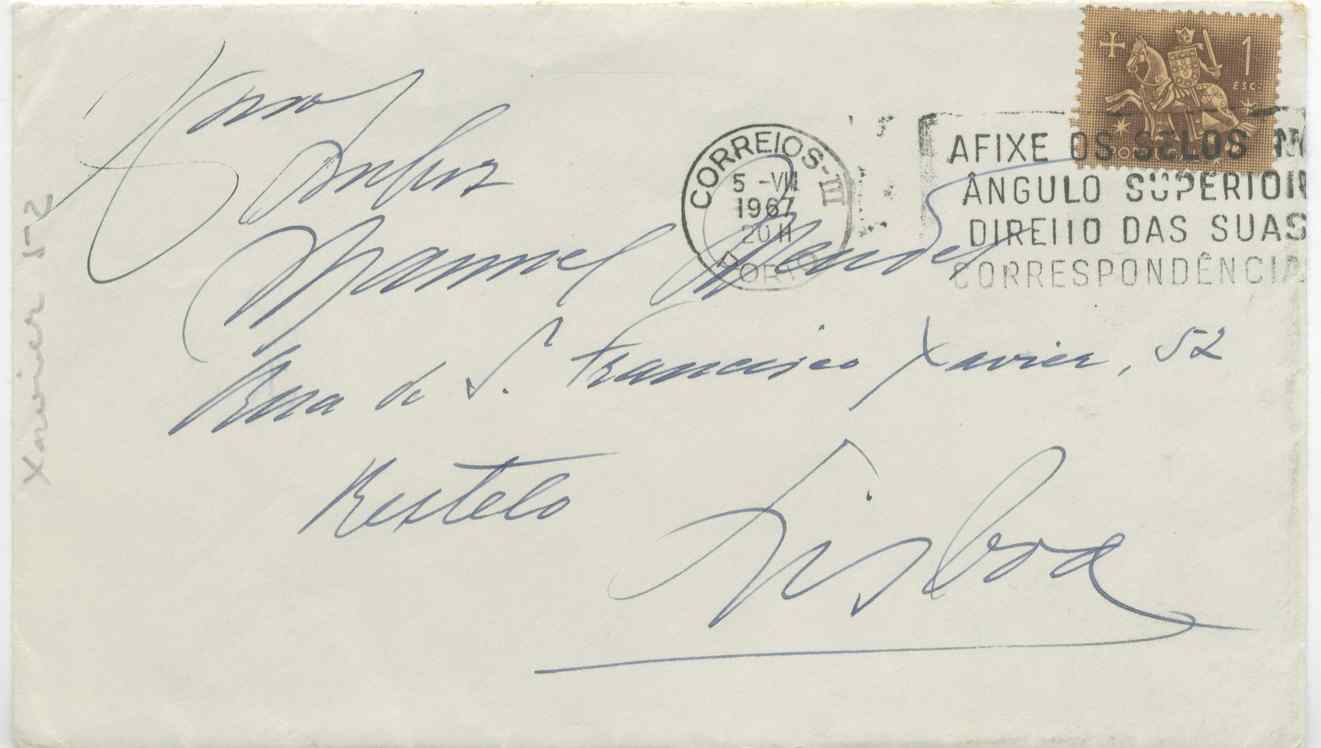 Exmo
Senhor
Manuel Mendes
Rua de S. Francisco Xavier, 52
Restelo
Lisboa
CORREIOS-III
5 -VII
1967
20 H
PORTO
AFIXE OS SELOS N
ÂNGULO SUPERIOR
DIREITO DAS SUAS
CORRESPONDÊNCIA
1
ESC.
Xavier 52